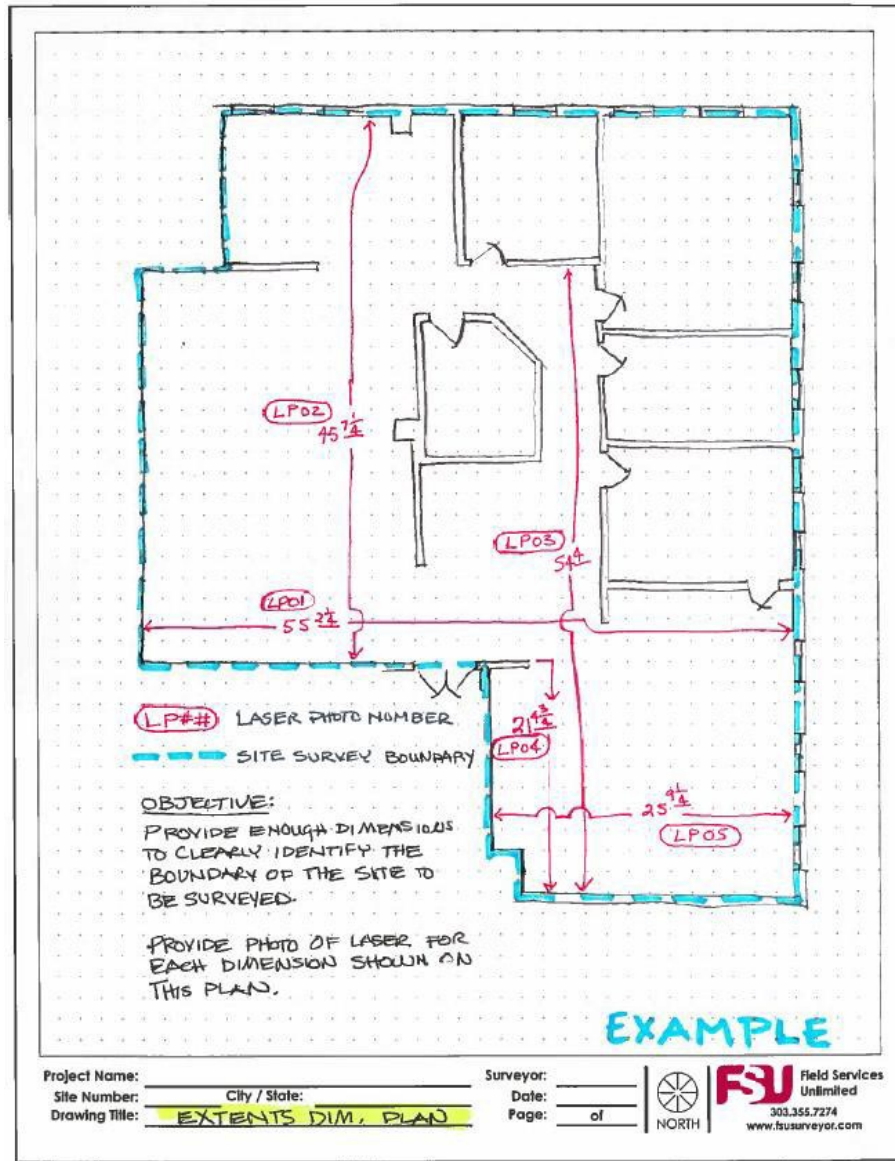 LP02
45 7 1/4
LP03
54 4
LP01
55 2 1/4
LP## LASER PHOTO NUMBER
SITE SURVEY BOUNDARY
21 4 3/4
LP04
25 9 1/4
LP05
OBJECTIVE:
PROVIDE ENOUGH DIMENSIONS
TO CLEARLY IDENTIFY THE
BOUNDARY OF THE SITE TO
BE SURVEYED.
PROVIDE PHOTO OF LASER FOR
EACH DIMENSION SHOWN ON
THIS PLAN.
EXAMPLE
Project Name:
Site Number: City / State:
Drawing Title: EXTENTS DIM. PLAN
Surveyor:
Date:
Page: of
NORTH
FSU Field Services
Unlimited
303.355.7274
www.fsusurveyor.com